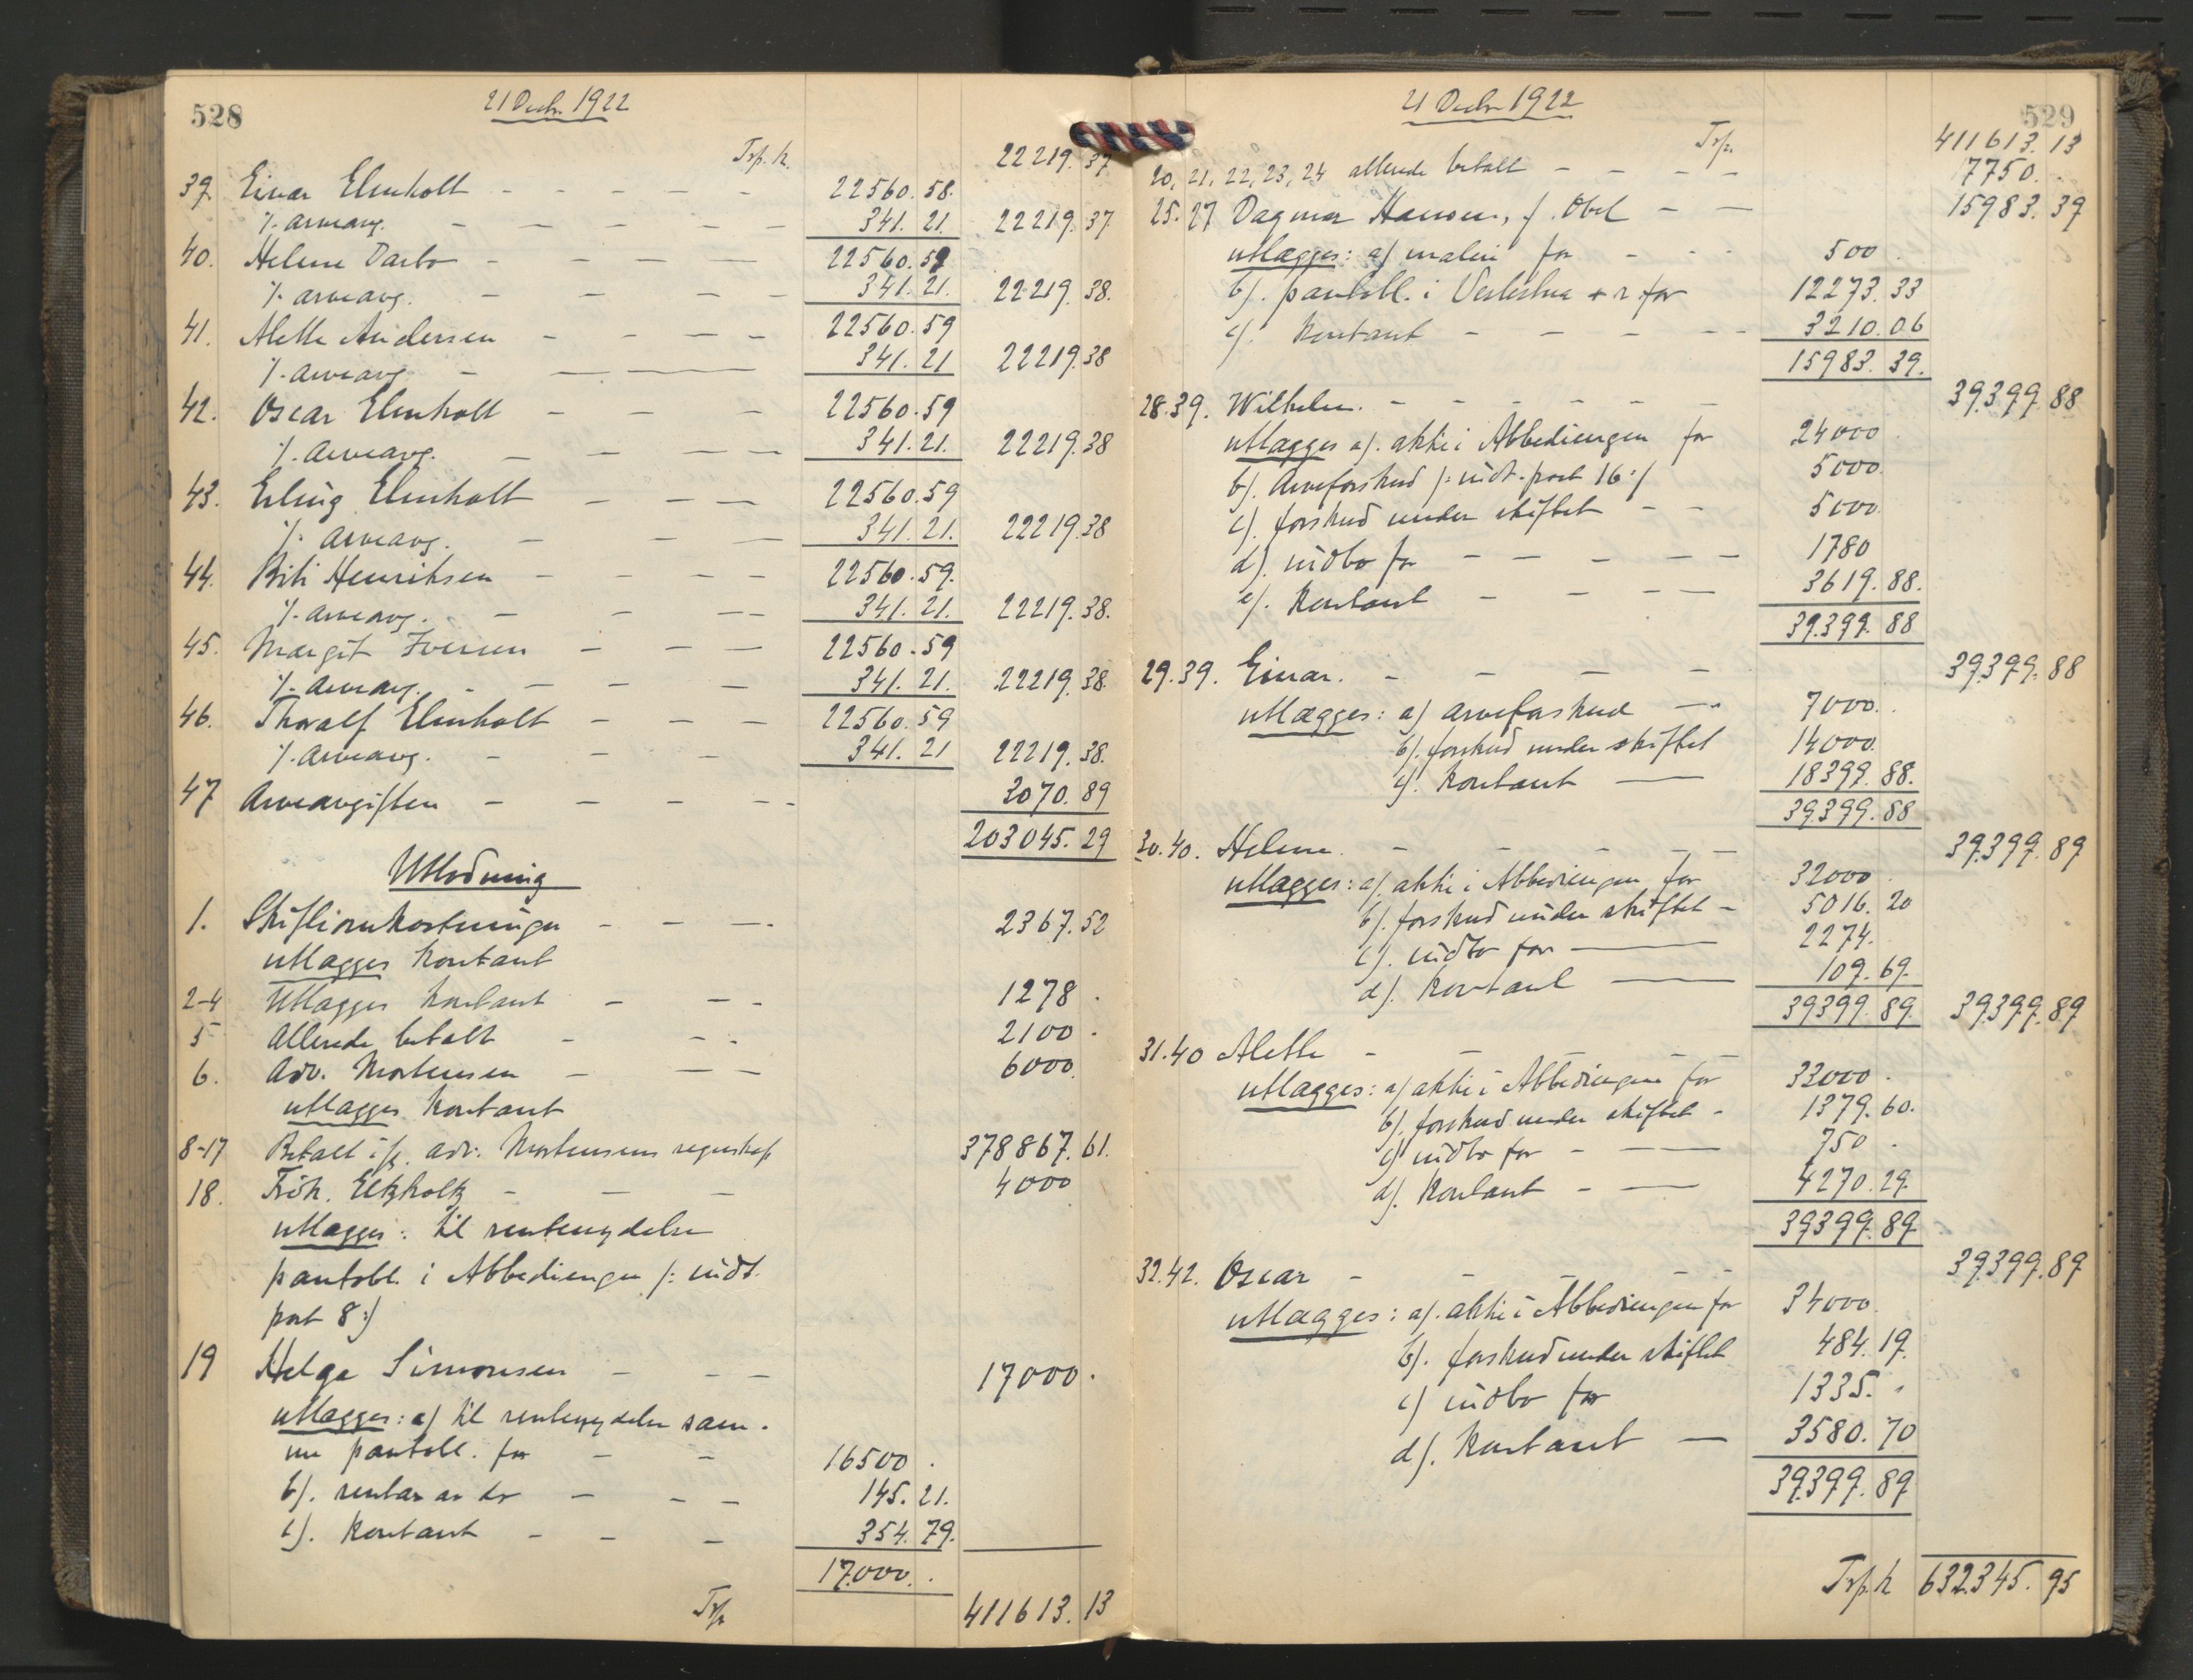 528
21 Decbr. 1922
Trsp. kr. 22219.37
39. Einar Elmholt - - - - - 22560.58.
./. arveavg. - - - - - 341.21. 22219.37
40. Helene Darbo - - - - 22560.59
./. arveavg. - - - - 341.21. 22219.38.
41. Alette Andersen - - - - 22560.59
./. arveavg. - - - 341.21 22219.38
42. Oscar Elmholt - - - 22560.59
./. arveavg. - - - - 341.21. 22219.38
43. Erling Elmholt - - - 22560.59
./. arveavg. - - - 341.21. 22219.38
44. Bibi Henriksen - - - - 22560.59.
./. arveavg. - - - 341.21. 22219.38.
45. Margit Iversen - - - 22560.59
./. arveavg. - - - - 341.21. 22219.38.
46. Thoralf Elmholt - - - 22560.59
./. arveavg. - - - 341.21 22219.38.
47 Arveavgiften - - - - - 3070.89
203045.29
Utlodning
1. Skifteomkostninger - - - 2367.52
utlægges kontant
2-4 Utlægges kontant - - - 1278.
5 Allerede betalt - - - 2100.
6. Adv. Mortensen - - - 6000.
utlægges kontant
8-17 Betalt ifg. adv. Mortensens regnskap 378867.61.
18. Frøk. Elkholtz - - - 4000
utlægges: til rentenydelse
pantobl. i Abbediengen /: indt.
post 8:/
19 Helga Simonsen - - - 17000.
utlægges: a/ til rentenydelse sam-
me pantobl. for - - 16500.
b/. renter av do - - - 145.21.
c/. kontant - - - 354.79.
17000..
Trsp. 411613.13
529
21 Decbr 1922
Trsp. 411613.13
20, 21, 22, 23, 24 allerede betalt - - - - 7750..
25.27 Dagmar Hansen, f. Obel - - 15983.39
utlægges: a/ maleri for - - - 500.
b/. pantobl. i Vestestua + r. for 12273.33
c/. kontant - - - - - 3210.06
15983.39.
28.39. Wilhelm. - - - - - - 39399.88
utlægges a/. aktie i Abbediengen for 24000.
b/. Arveforskud /: indt. post 16:/ 5000.
c/. forskud under skiftet - - 5000.
d/. indbo for - - - - - - 1780
e/. kontant - - - - 3619.88.
39399.88
29.39. Einar. - - - - 39399.88
utlægges: a/ arveforskud - - 7000..
b/. forskud under skiftet 14000.
c/. kontant - 18399.88.
39399.88
30.40. Helene. - - - - - 39399.89
utlægges: a/. aktie i Abbediengen for 32000.
b/. forskud under skiftet - 5016.20
c/. indbo for - 2274.
d/. kontant - 109.69.
39399.89. 39399.89
31.40 Alette - - - - -
utlægges: a/ aktie i Abbediengen for 33000.
b/. forskud under skiftet - 1379.60.
c/ indbo for - - 750.
d/. kontant - - 4270.29.
39399.89
32.42. Oscar - - - - - 39399.89
utlægges: a/. aktie i Abbediengen for 34000.
b/. forskud under skiftet 484.19.
c/ indbo for 1335..
d/. kontant - 3580.70
39399.89
Trsp. k 632345.95